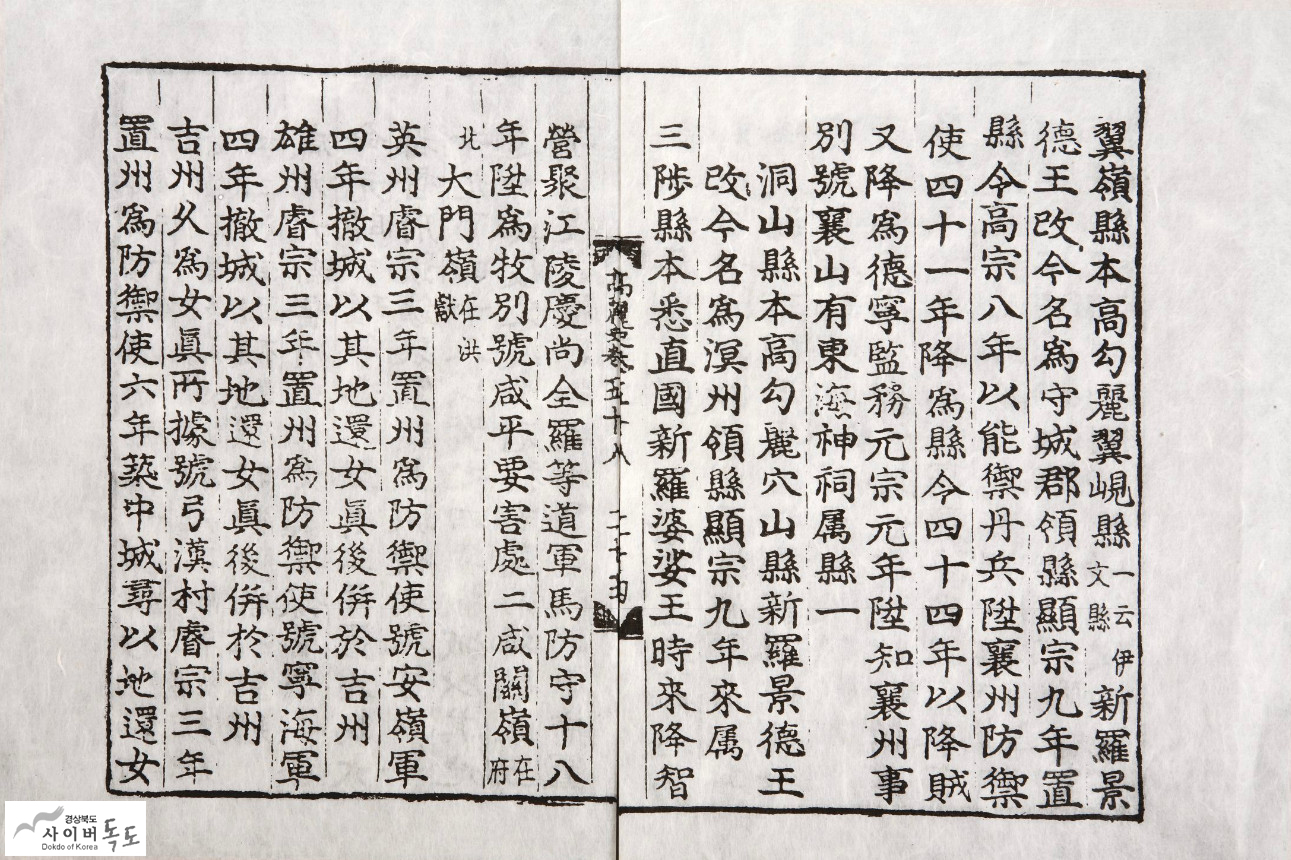 翼嶺縣本高勾麗翼峴縣一云伊文縣新羅景
德王改今名爲守城郡領縣顯宗九年置
縣令高宗八年以能禦丹兵陞襄州防禦
使四十一年降爲縣令四十四年以降賊
又降爲德寧監務元宗元年陞知襄州事
別號襄山有東海神祠属縣一
洞山縣本高勾麗穴山縣新羅景德王
改今名爲溟州領縣顯宗九年來属
三陟縣本悉直國新羅婆娑王時來降智
高麗史卷五十八 二十
營聚江陵慶尚全羅等道軍馬防守十八
年陞爲牧別號咸平要害處二咸關嶺在府
北大門嶺在洪獻
英州睿宗三年置州爲防禦使號安嶺軍
四年撤城以其地還女眞後併於吉州
雄州睿宗三年置州爲防禦使號寧海軍
四年撤城以其地還女眞後併於吉州
吉州久爲女眞所據號弓漢村睿宗三年
置州爲防禦使六年築中城尋以地還女
경상북도
사이버독도
Dokdo of Korea